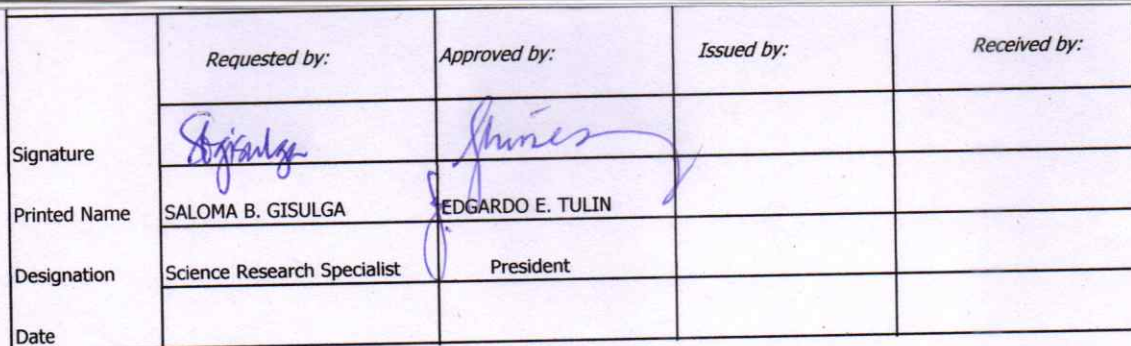 Requested by: Approved by: Issued by: Received by:
Signature
Printed Name SALOMA B. GISULGA EDGARDO E. TULIN
Designation Science Research Specialist President
Date